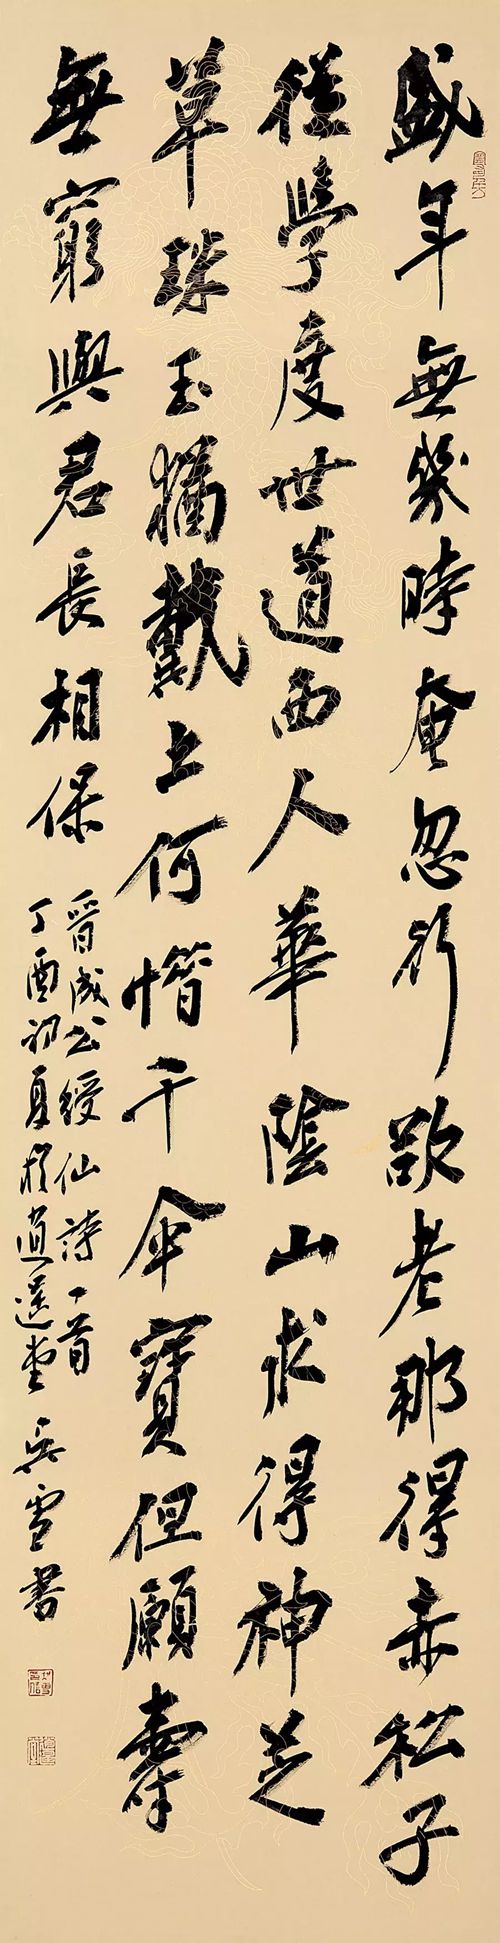 盛年無幾時奄忽行欲老那得赤松子
從學度世道西入華陰山求得神芝
草珠玉猶戴土何惜千金寶但願壽
無窮與君長相保
晉成公綏仙詩一首
丁酉初夏於堂吳雪書